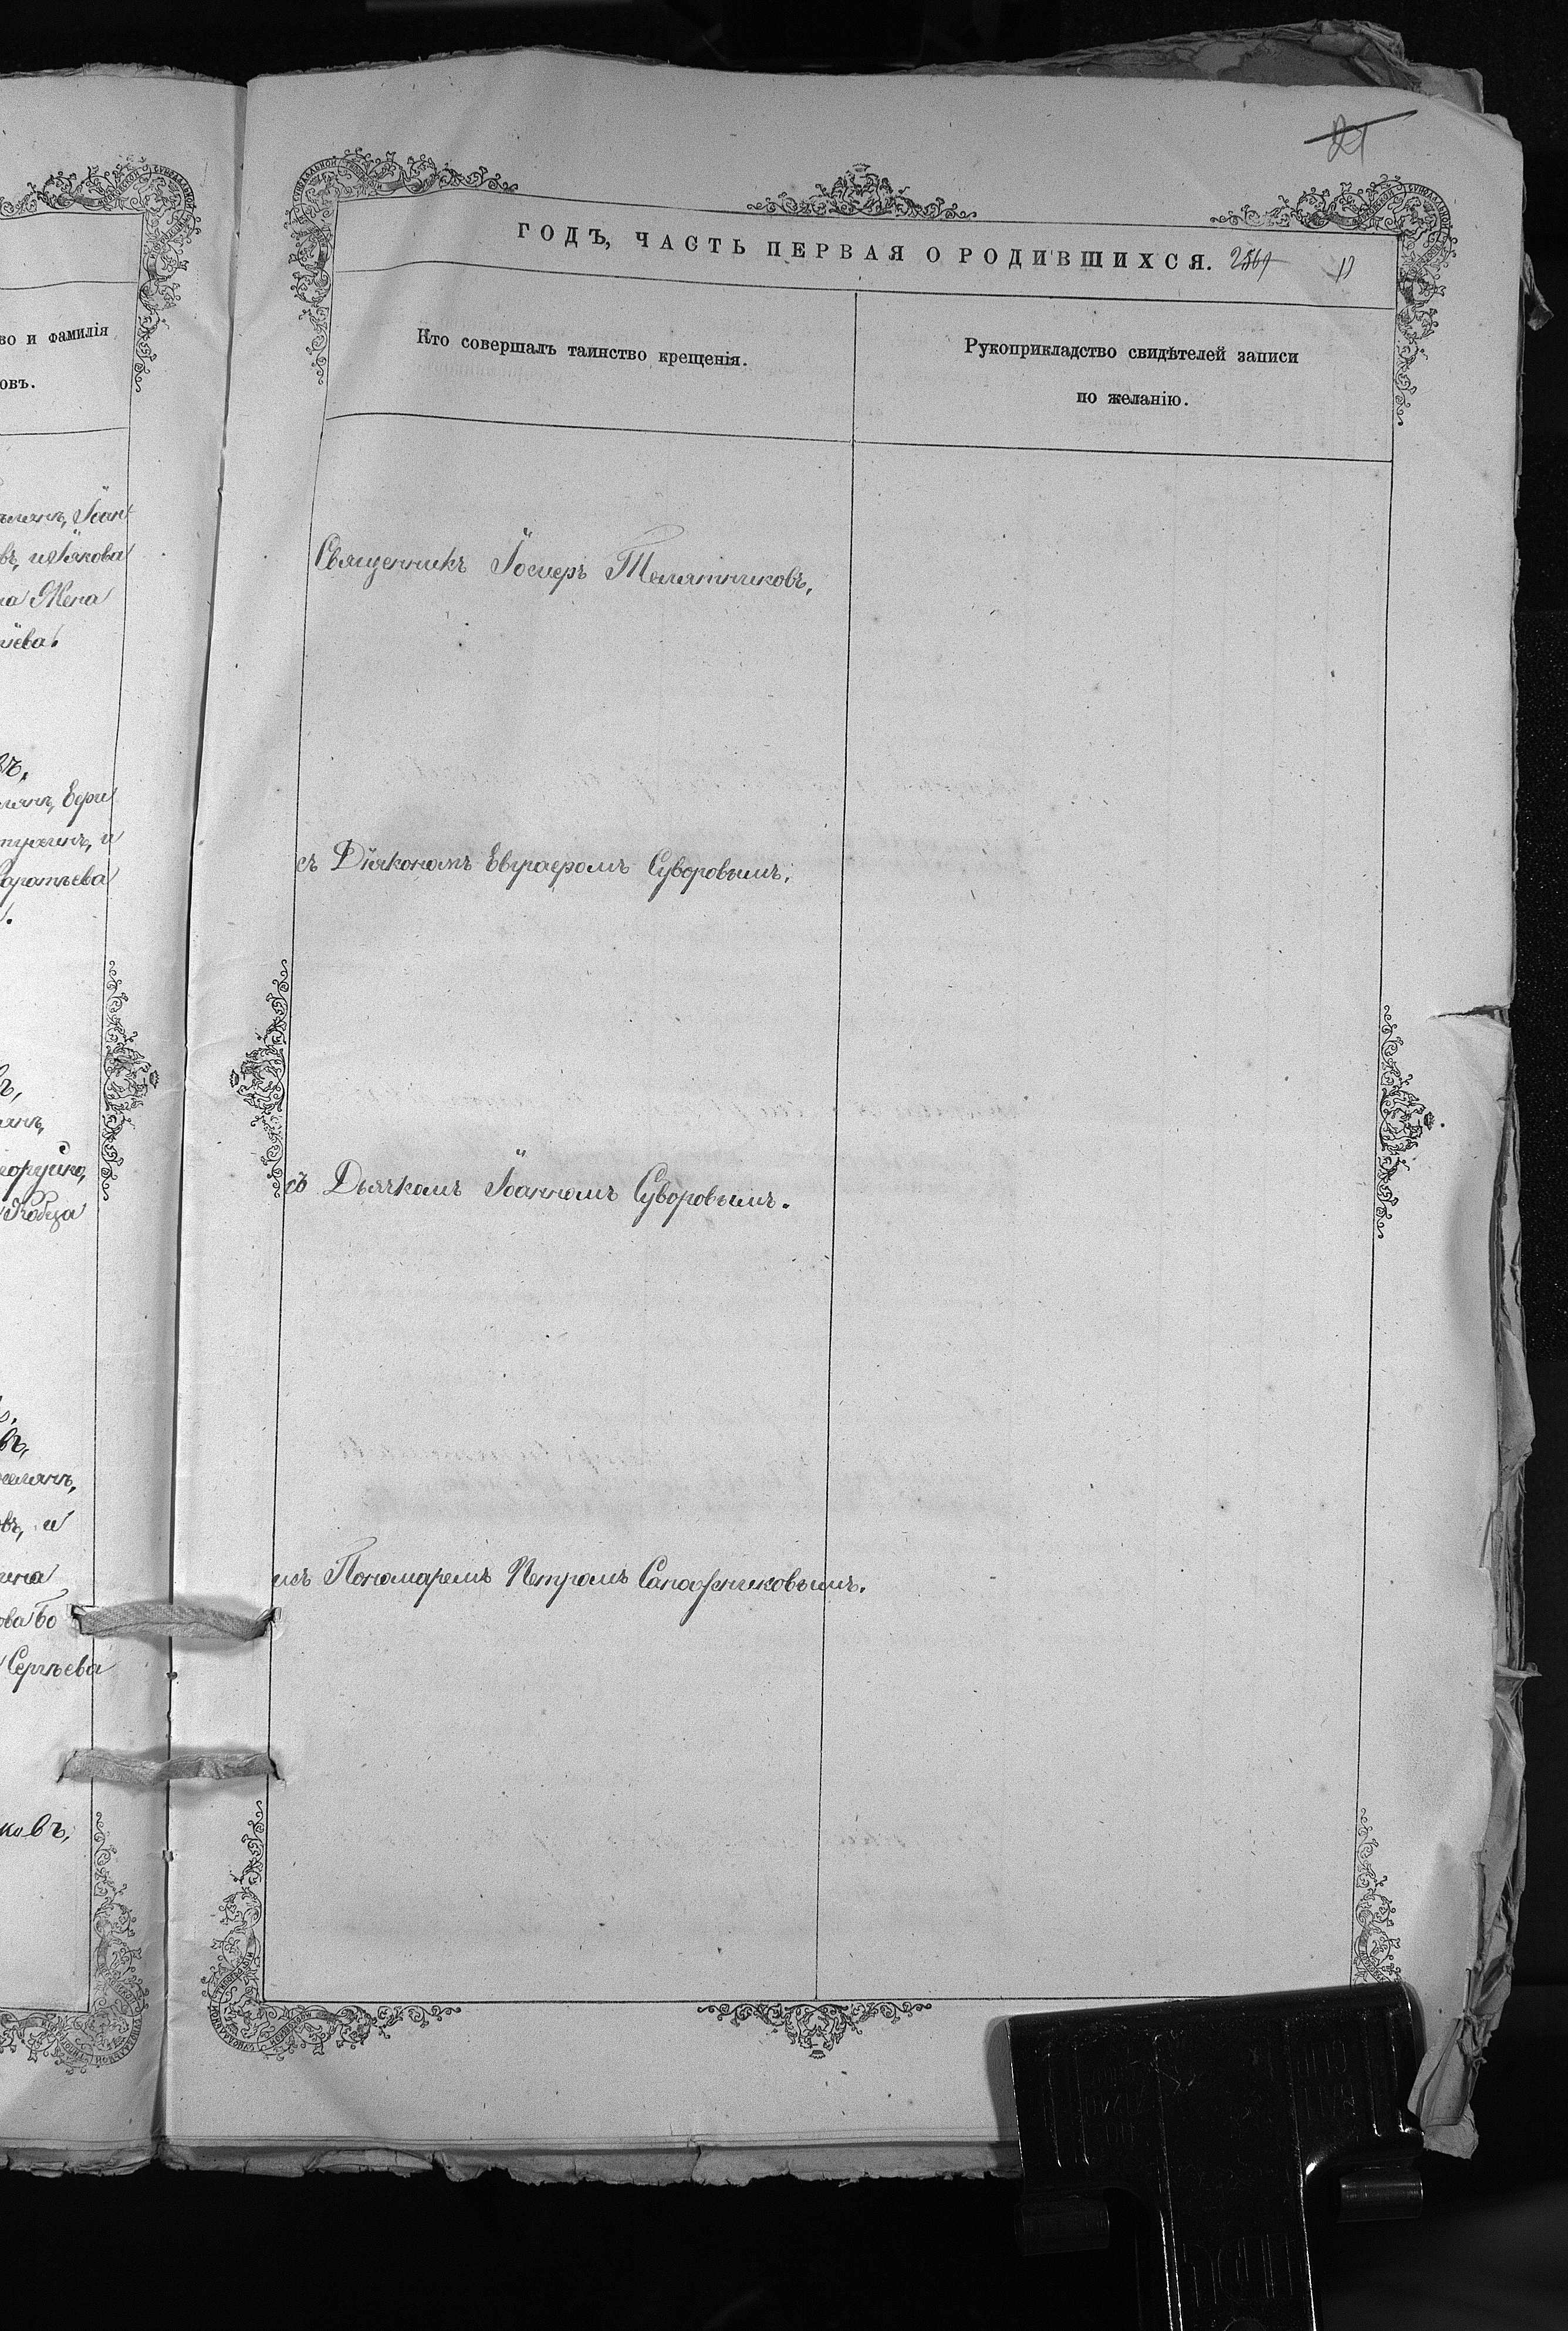 во и фамилія
овъ.
Іоан
въ, и Якова
на Жена
іева.
въ,
Ефи
и
.
Кобца
въ,
въ, и
ова Бо
Сергѣева
ковъ,
21
ГОДЪ, ЧАСТЬ ПЕРВАЯ О РОДИВШИХСЯ. 2569
Кто совершалъ таинство крещенія.
Рукоприкладство свидѣтелей записи
по желанію.
Священникъ Іосифъ Телятниковъ,
съ Діякономъ Евграфомъ Суворовымъ,
съ Дьячкомъ Іоанномъ Суворовымъ.
исъ Пономаремъ Петромъ Сапожниковымъ.